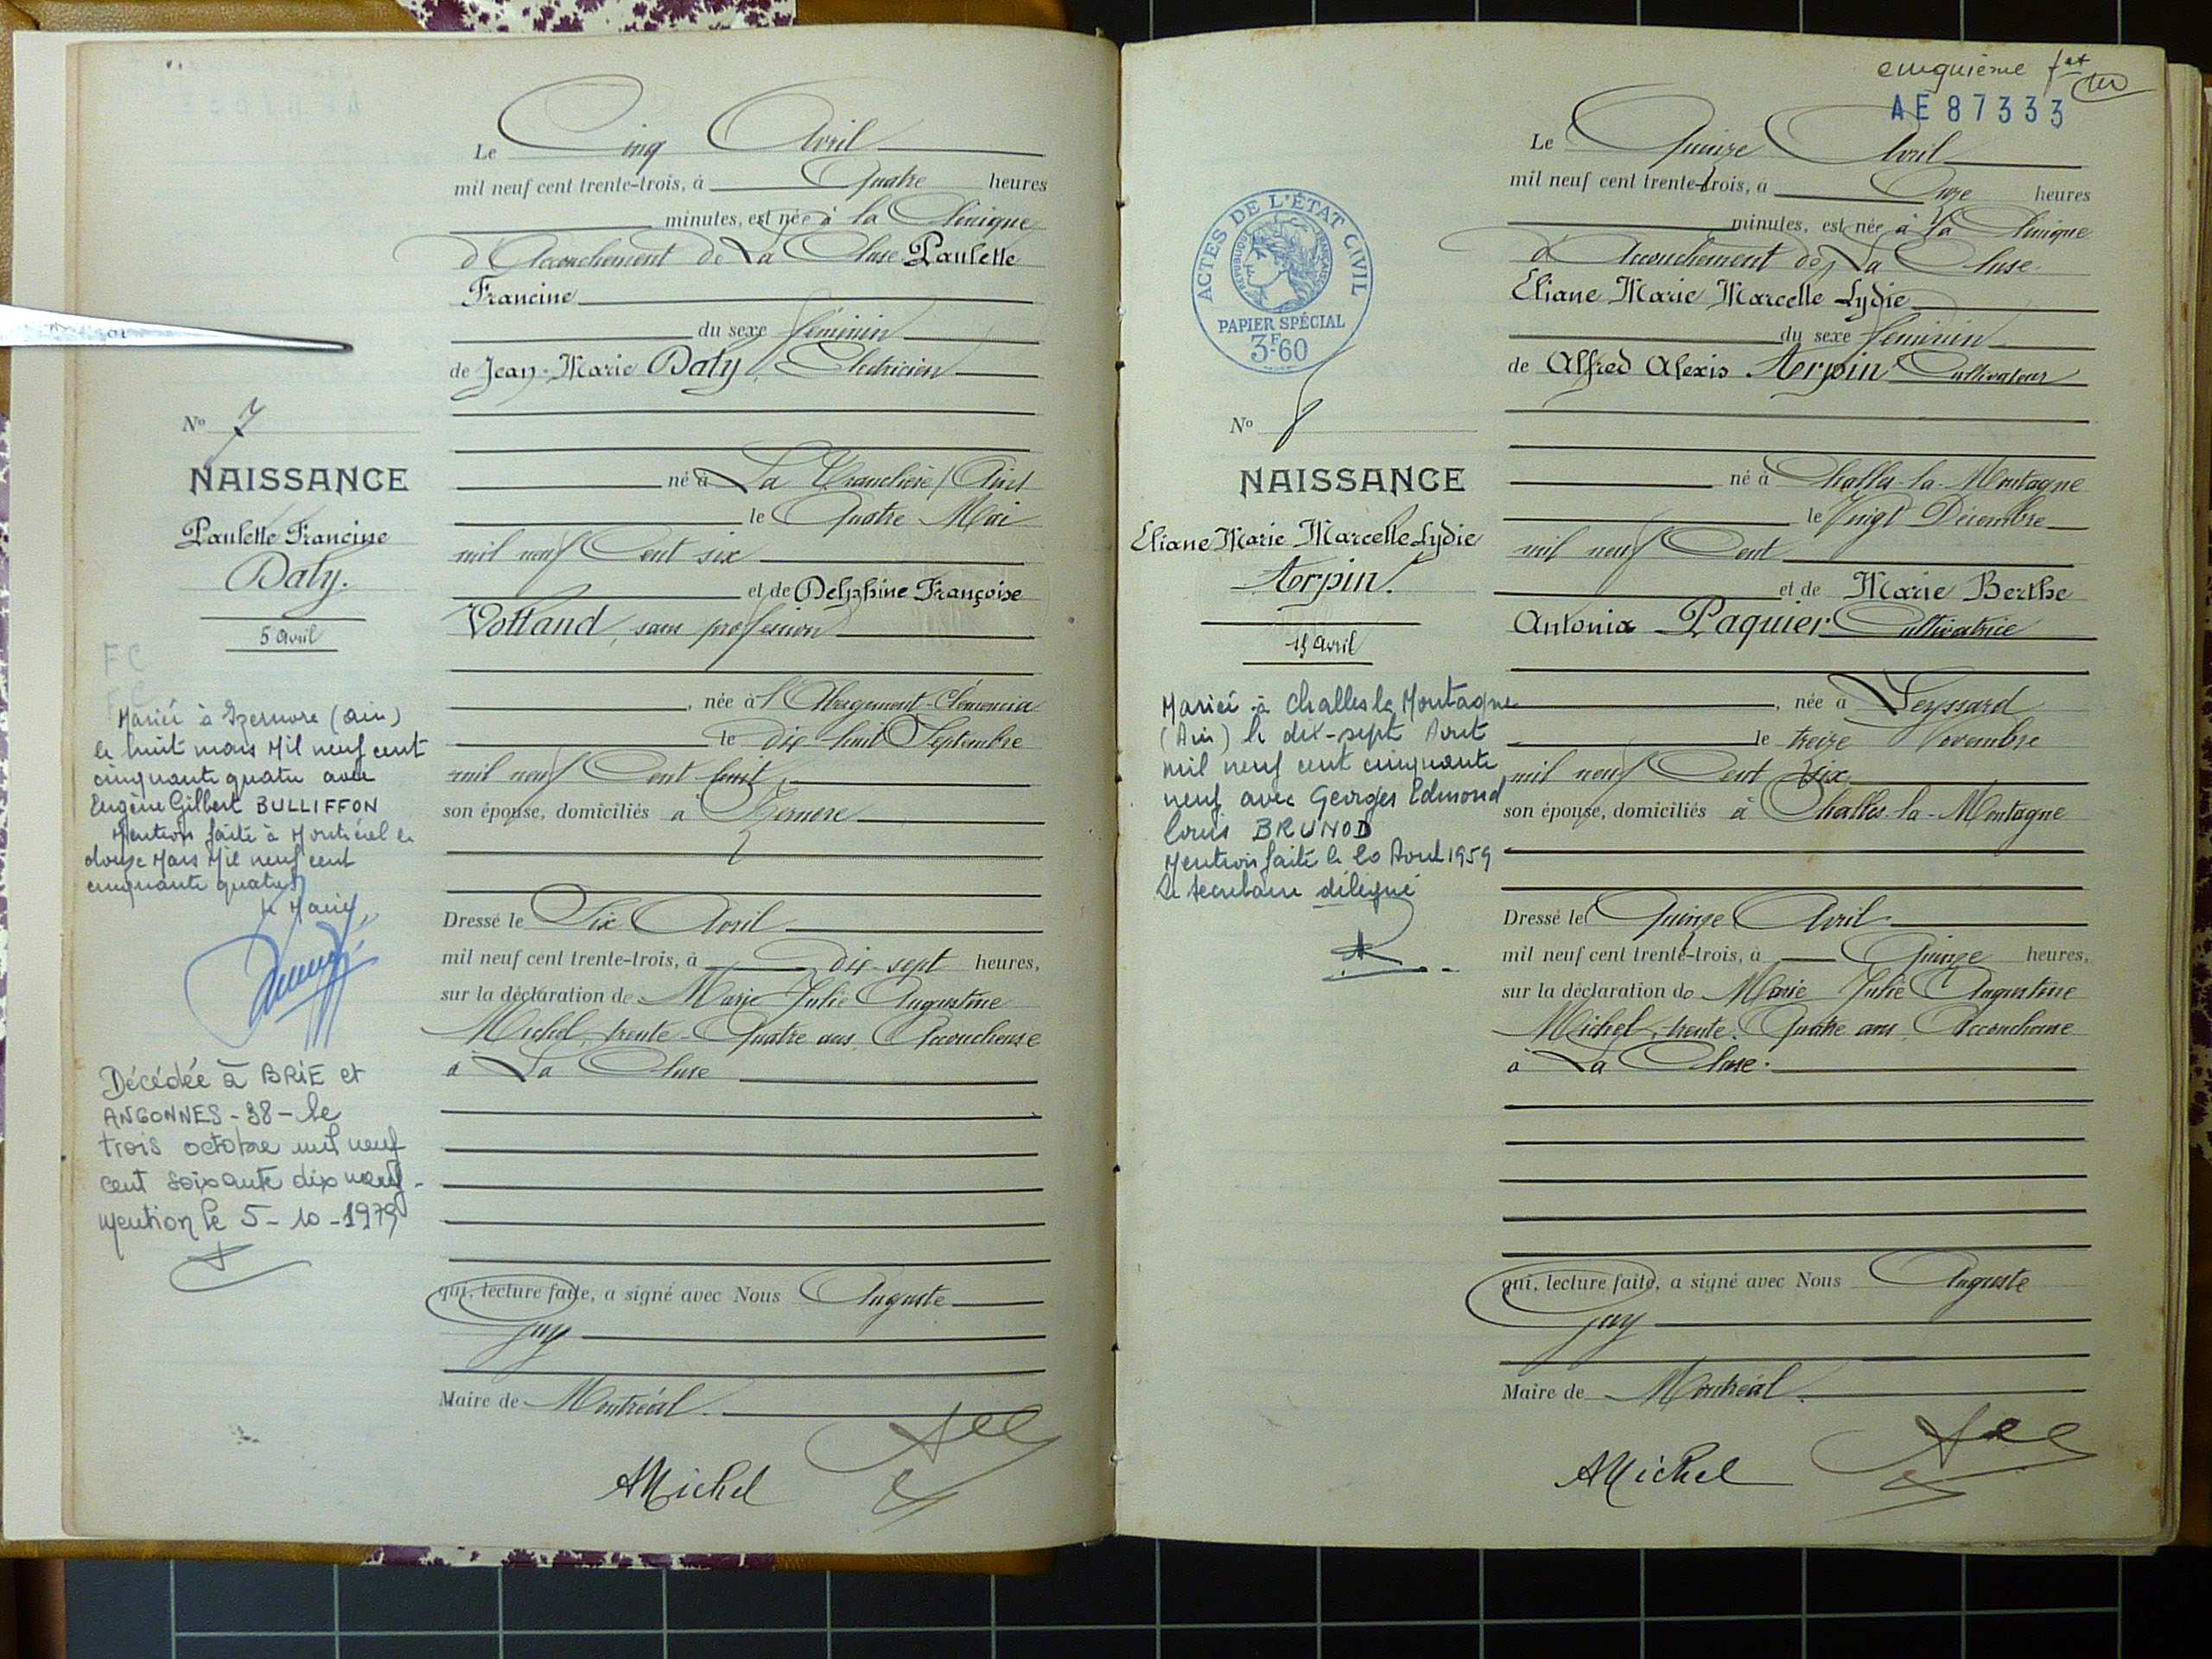 Le Cinq Avril
mil neuf cent trente-trois, à Quatre heures
minutes, est née à la Clinique
d'Accouchement de La Cluse Paulette
Francine
du sexe féminin
de Jean-Marie Daty, Electricien
né à La Tranclière (Ain)
le Quatre Mai
mil neuf Cent six
et de Delphine Françoise
Volland, sans profession
, née à l'Abergement-Clémencia
le Dix-huit Septembre
mil neuf Cent huit,
son épouse, domiciliés à Izernore
Dressé le Six Avril
mil neuf cent trente-trois, à Dix-sept heures,
sur la déclaration de Marie Julie Augustine
Michel, trente-Quatre ans, Accoucheuse
à La Cluse
qui, lecture faite, a signé avec Nous Auguste
Guy
Maire de Montréal.
AMichel
No 7
NAISSANCE
Paulette Francine
Daty.
5 Avril
FC
Mariée à Izernore (Ain)
le huit mars Mil neuf cent
cinquante quatre avec
Eugène Gilbert BULLIFFON
Mention faite à Montréal le
douze Mars Mil neuf cent
cinquante quatre
Le Maire,
Décédée à BRIE et
ANGONNES - 38 - le
trois octobre mil neuf
cent soixante dix neuf -
Mention le 5 - 10 - 1979
cinquième fet
AE87333
Le Quinze Avril
mil neuf cent trente-trois, à Onze heures
minutes, est née à la Clinique
d'Accouchement de La Cluse
Eliane Marie Marcelle Lydie
du sexe féminin
de Alfred Alexis Arpin Cultivateur
né à Challes-la-Montagne
le Vingt Décembre
mil neuf Cent
et de Marie Berthe
Antonia Paquier Cultivatrice
, née à Leyssard
le treize Novembre
mil neuf Cent six
son épouse, domiciliés à Challes-la-Montagne
Dressé le Quinze Avril
mil neuf cent trente-trois, à Quinze heures,
sur la déclaration de Marie Julie Augustine
Michel, trente-Quatre ans, Accoucheuse
à La Cluse.
qui, lecture faite, a signé avec Nous Auguste
Guy
Maire de Montréal.
AMichel
ACTES DE L'ÉTAT CIVIL
RÉPUBLIQUE FRANÇAISE
PAPIER SPÉCIAL
3F60
No 8
NAISSANCE
Eliane Marie Marcelle Lydie
Arpin.
15 Avril
Mariée à Challes la Montagne
(Ain) le dix-sept Août
mil neuf cent cinquante
neuf avec Georges Edmond
Louis BRUNOD
Mention faite le 20 Août 1959
Le secrétaire délégué